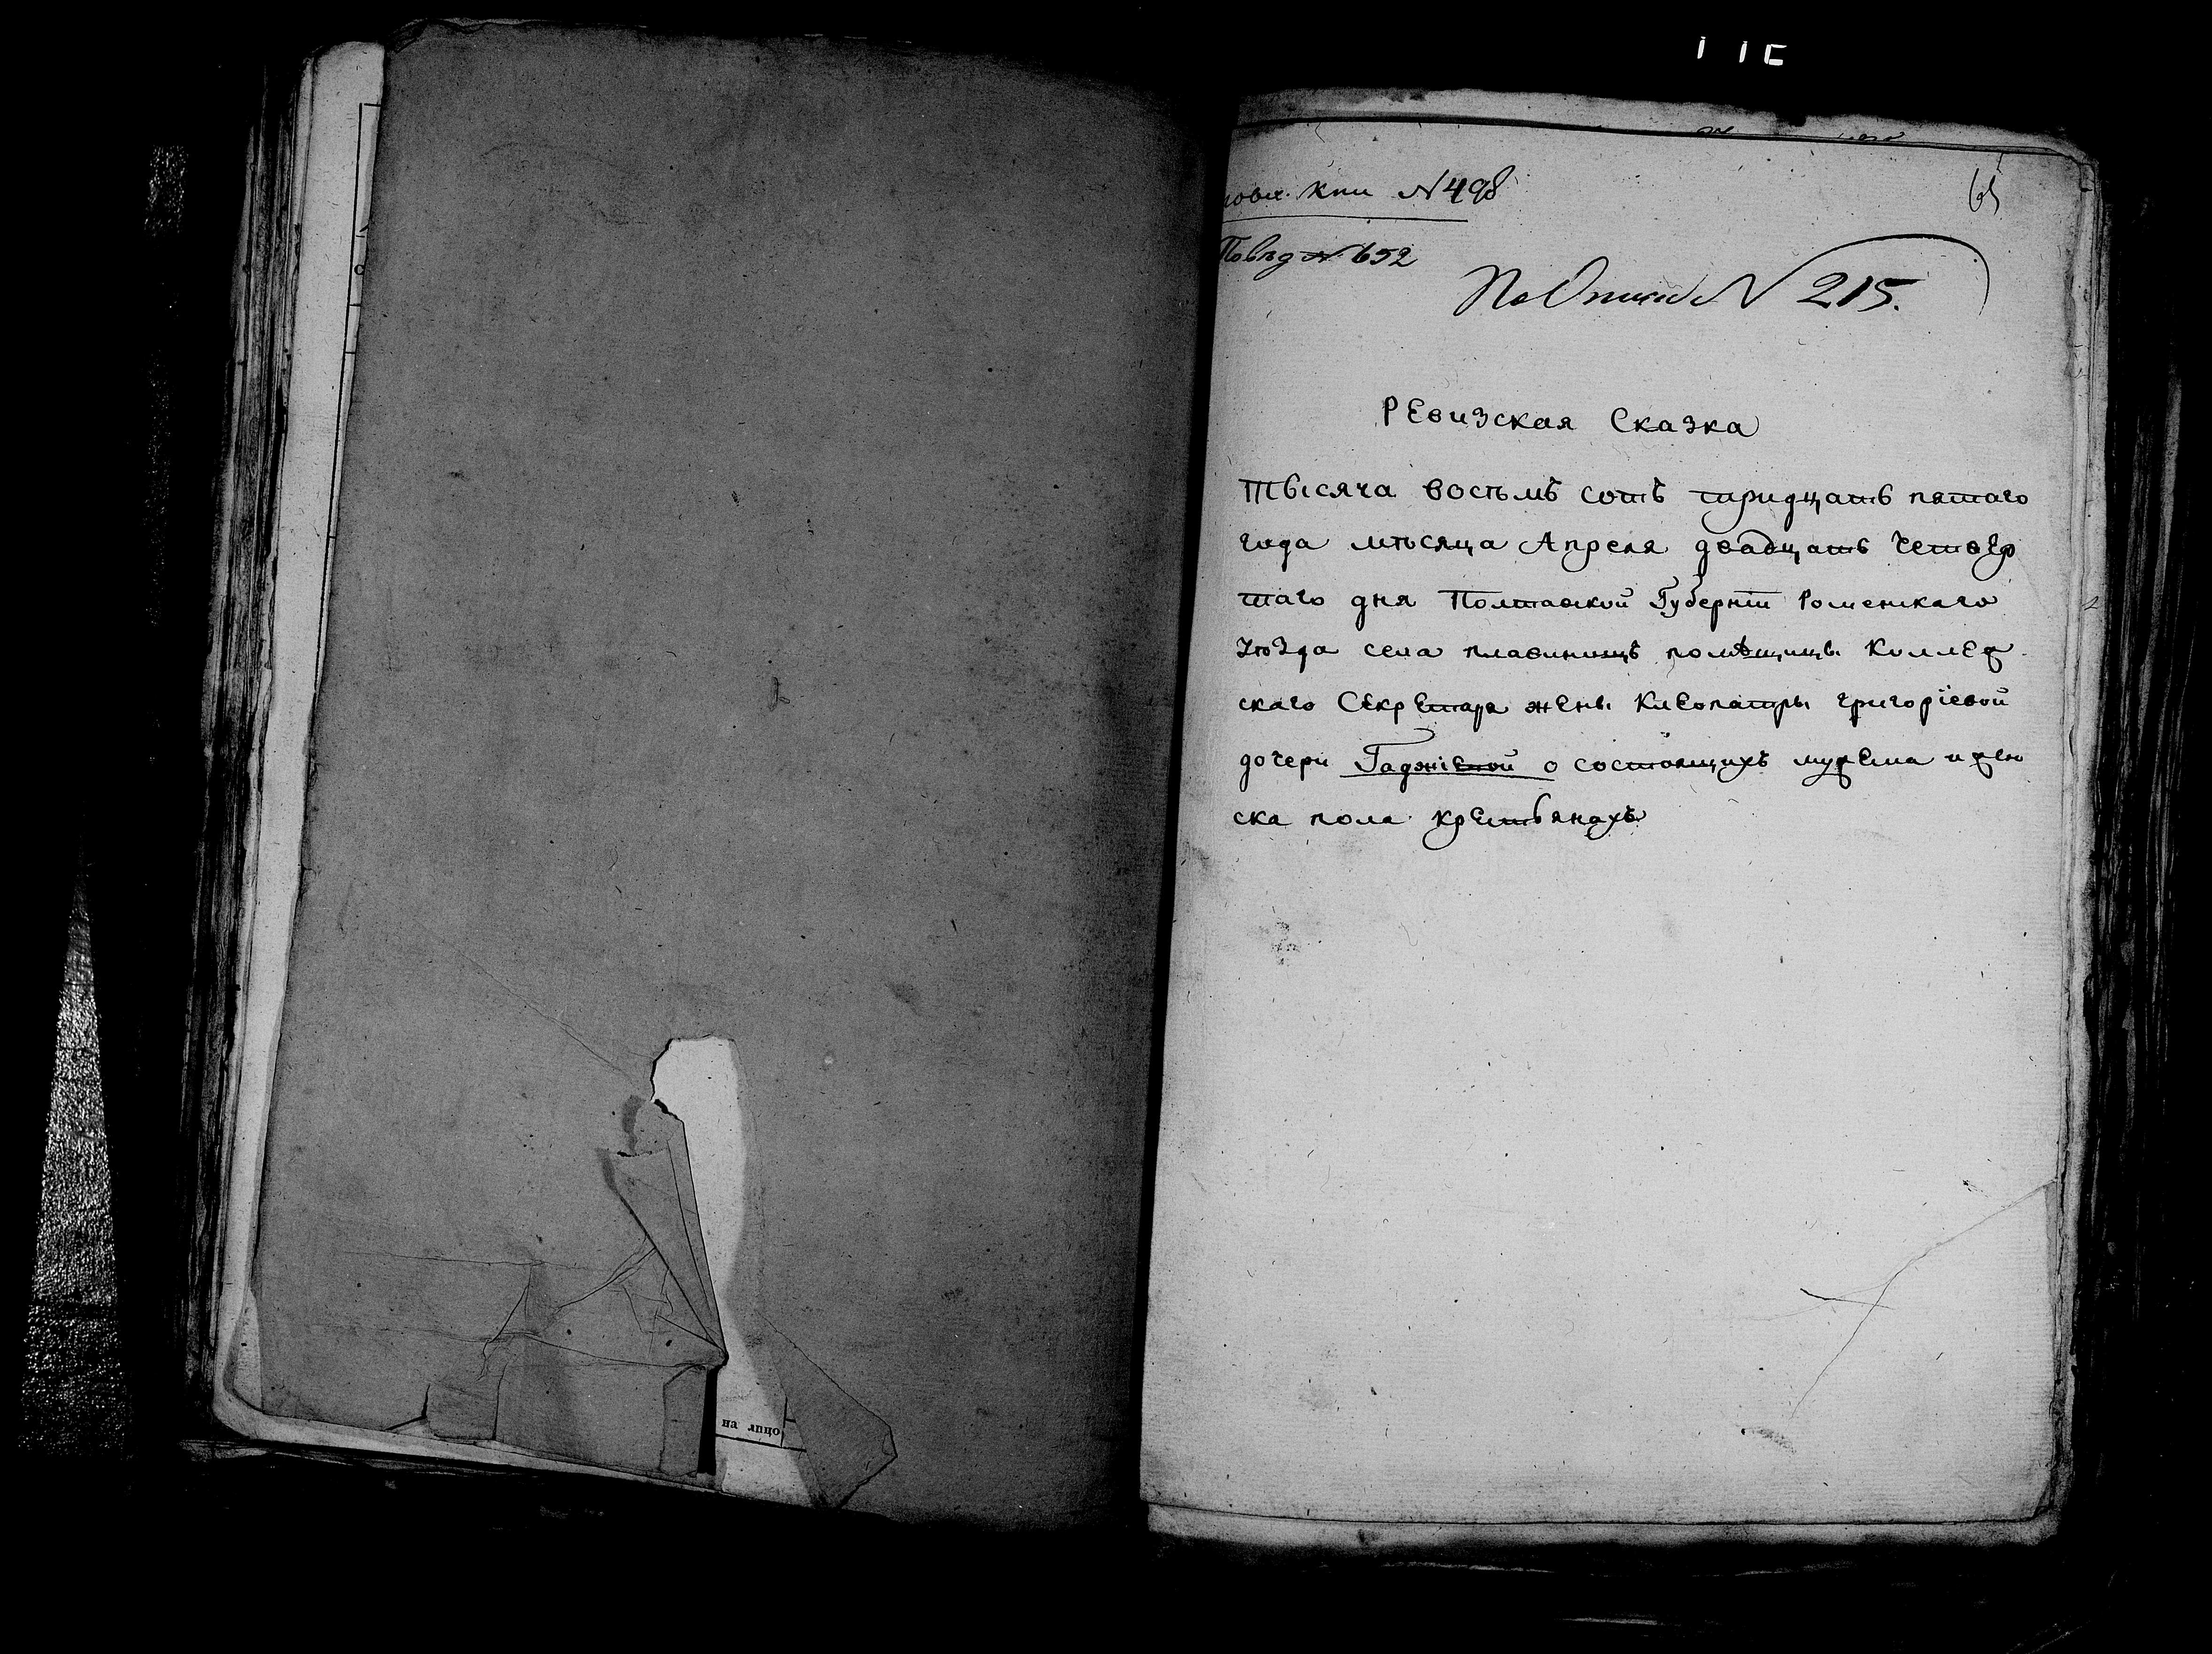 кни N 498
Повѣд N 652
По Описи N 215.
65
Ревизская Сказка
тысяча восъмъ сотъ тридцать пятаго
года мѣсяца Апреля двадцать четвер
таго дня Полтавской Губерніи Роменскаго
уѣзда села плавинищъ помѣщицы Коллеж
скаго Секретаря жены Клеопатры григоріевой
дочери Гаджіевой о состоящихъ мужеска и жен
ска пола крестьянахъ
на лицо